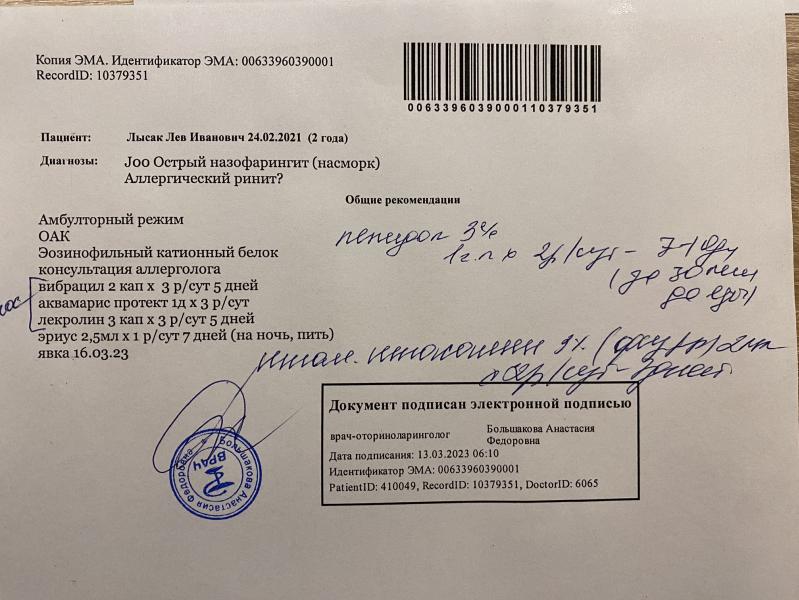 Копия ЭМА. Идентификатор ЭМА: 00633960390001
RecordID: 10379351
0063396039000110379351
Пациент: Лысак Лев Иванович 24.02.2021 (2 года)
Диагнозы: J00 Острый назофарингит (насморк)
Аллергический ринит?
Общие рекомендации
Амбулторный режим
ОАК
Эозинофильный катионный белок
консультация аллерголога
вибрацил 2 кап х 3 р/сут 5 дней
аквамарис протект 1д х 3 р/сут
лекролин 3 кап х 3 р/сут 5 дней
эриус 2,5мл х 1 р/сут 7 дней (на ночь, пить)
явка 16.03.23
3%
х 2р/сут - 7
(до
до еды)
2р/сут
Документ подписан электронной подписью
врач-оториноларинголог Большакова Анастасия
Федоровна
Дата подписания: 13.03.2023 06:10
Идентификатор ЭМА: 00633960390001
PatientID: 410049, RecordID: 10379351, DoctorID: 6065
Большакова Анастасия Федоровна
ВРАЧ